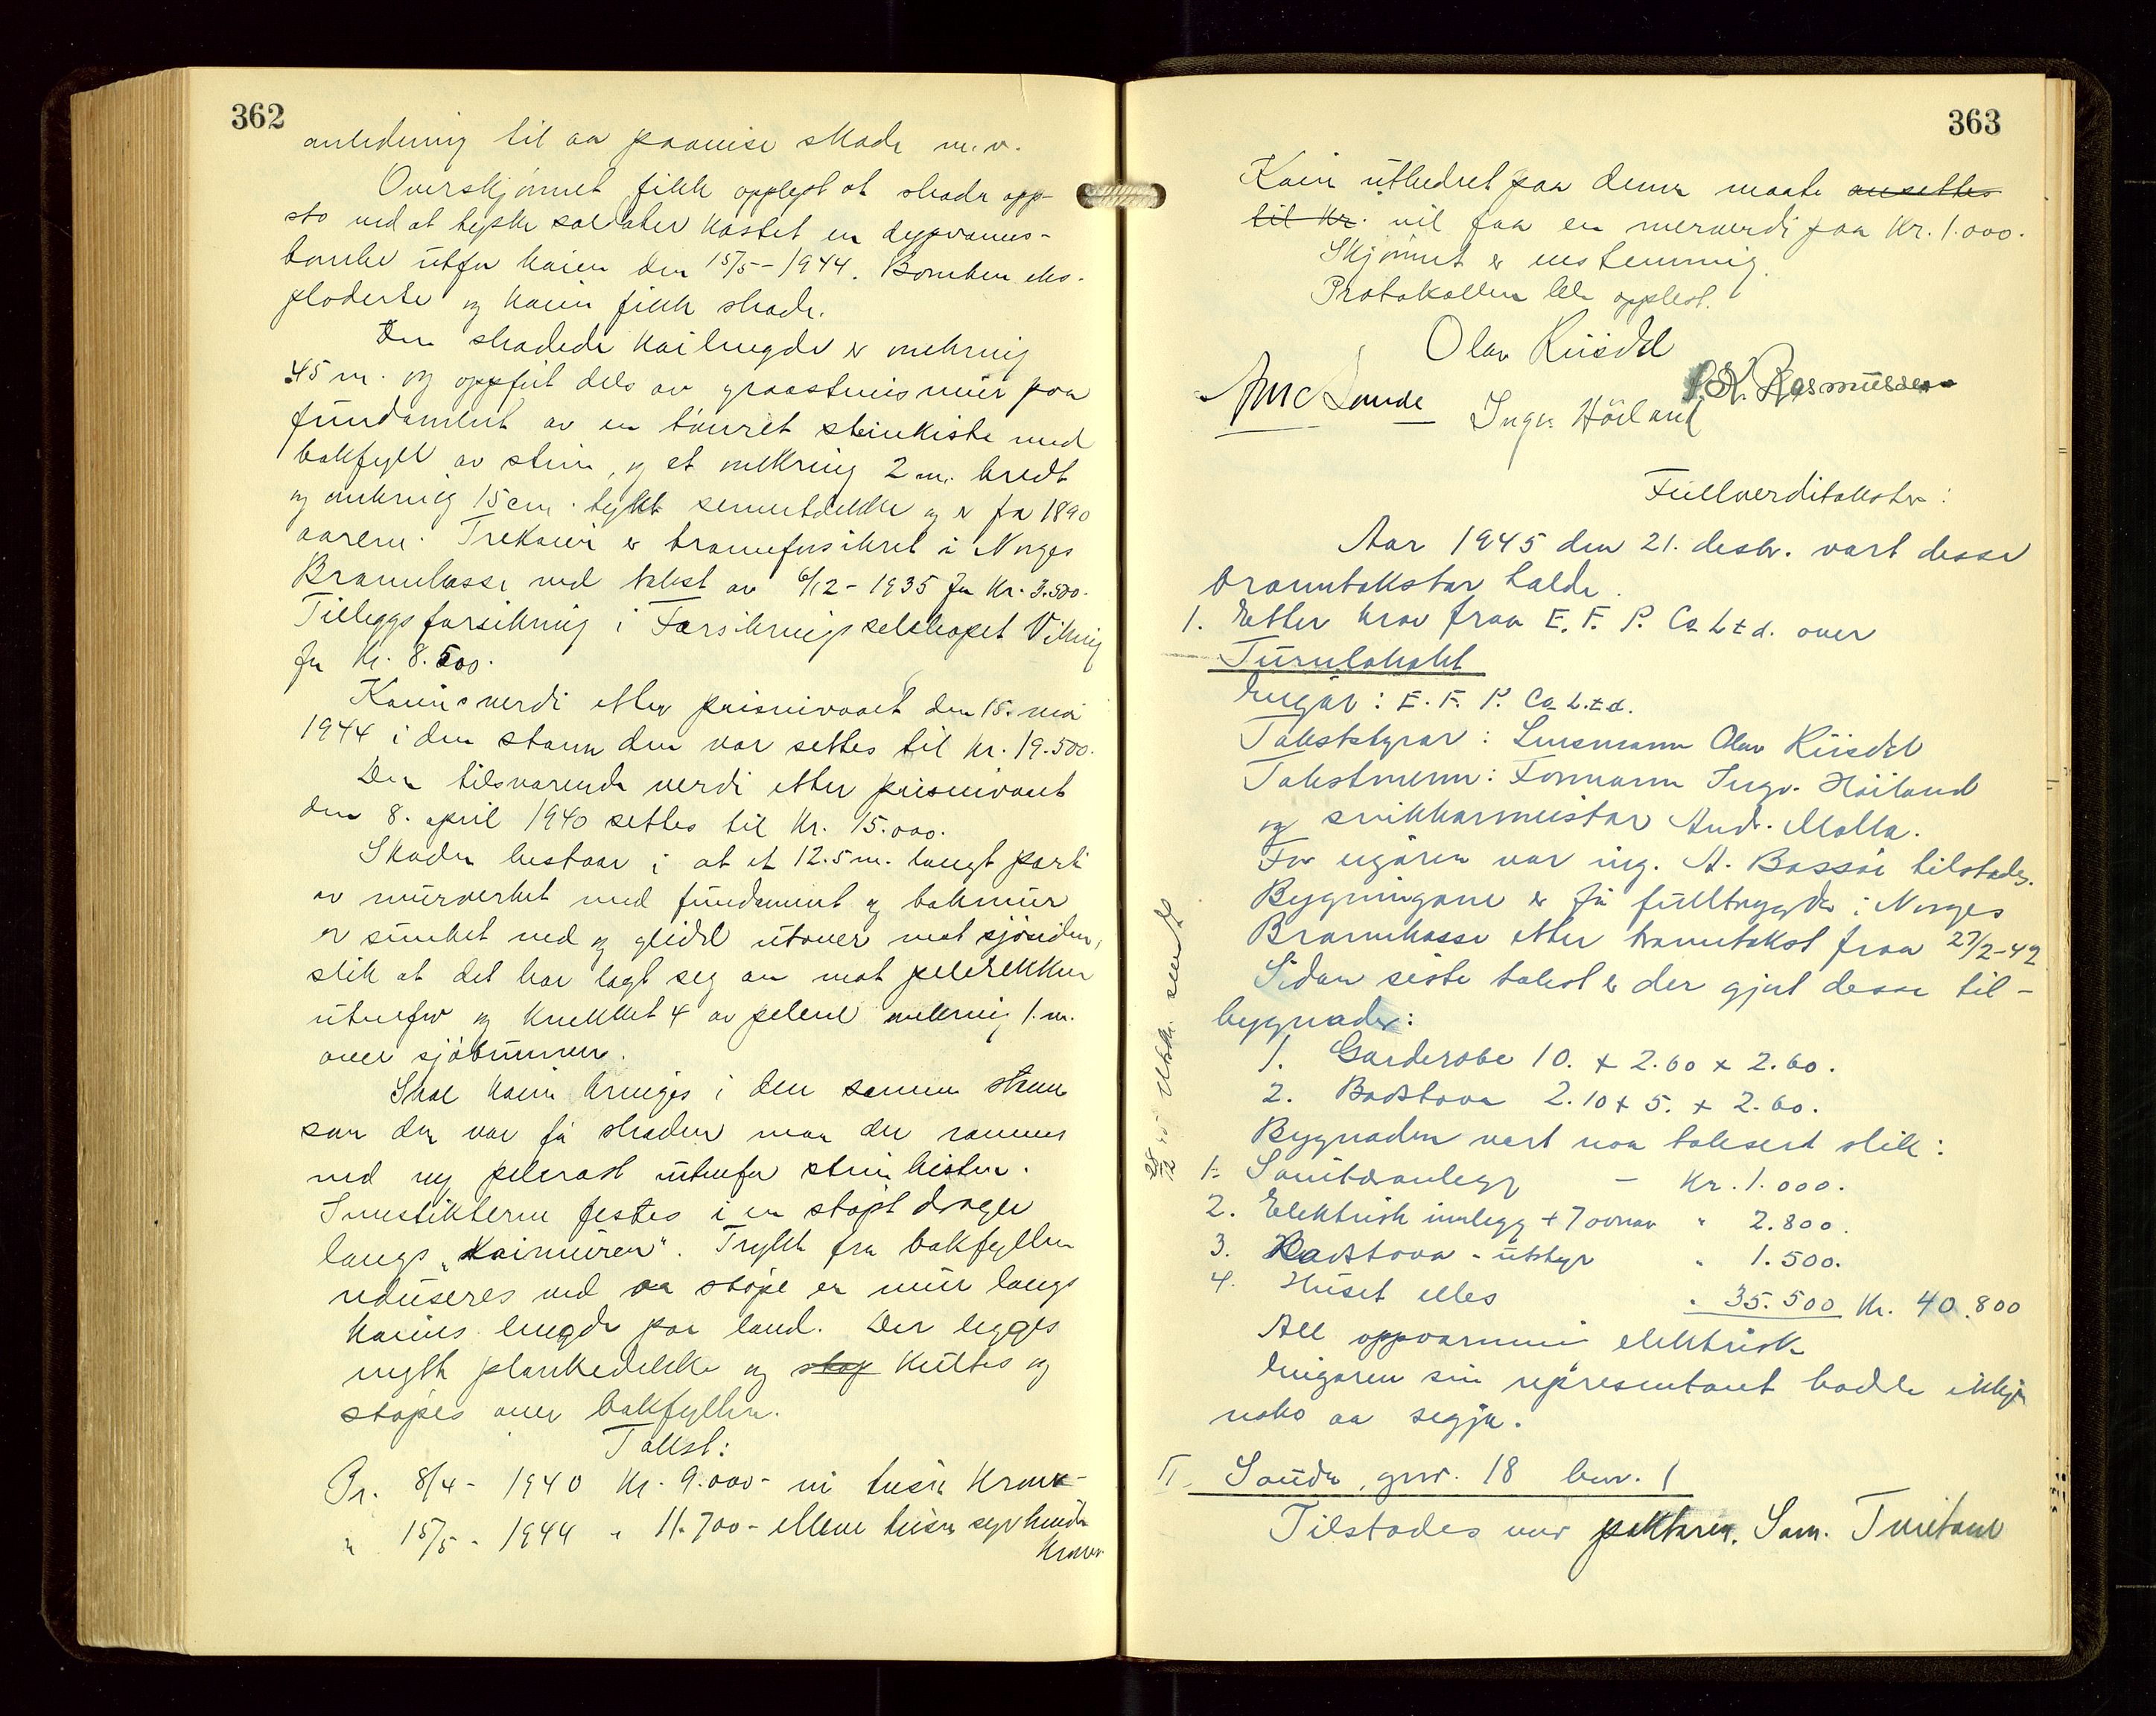 362
anledning til aa paavise skade m.v.
Overskjønnet fikk opplyst at skaden opp-
sto ved at tyske soldater kastet en dypvanns-
bombe utfor kaien den 15/5-1944. Bomben eks-
ploderte og kaien fikk skade.
Den skadede kailengde er omkring
45 m. og oppført dels av graasteinsmur paa
fundament av en tømret steinkiste med
bakfyll av stein, og et omkring 2 m. bredt
og omkring 15 cm. tykt sementdekke og er fra 1890
aarene. Trekaien er brannforsikret i Norges
Brannkasse ved takst av 6/12-1935 for Kr. 3.500.
Tilleggsforsikring i Forsikringsselskapet Viking
for Kr. 8.500.
Kaiens verdi etter prisnivaaet den 15. mai
1944 i den stann den var settes til Kr. 19.500.
Den tilsvarende verdi etter prisnivaaet
den 8. april 1940 settes til Kr. 15.000.
Skaden bestaar i at et 12.5 m. langt parti
av murverket med fundament og bakmur
er sunket ned og glidd utover mot sjøsiden,
slik at det har lagt seg an mot pelerekken
utenfor og knekket 4 av pelene omkring 1. m.
over sjøbunnen.
Skal kaien bringes i den samme stann
som den var før skaden maa der rammes
ned ny pelerast utenfor steinkisten.
Innstikkerne festes i en støpt drager
langs "Kaimuren". Trykk fra bakfyllen
reduseres ved aa støpe en mur langs
kaiens lengde paa land. Der legges
nytt plankedekke og støp kultes og
støpes over bakfyllen.
Takst:
Pr. 8/4- 1940 Kr. 9.000- ni tusen Kroner-
" 15/5- 1944 " 11.700- elleve tusen syvhundre
Kroner
363
Kaien utbedret paa denne maate ansettes
til Kr. vil faa en merverdi paa Kr. 1.000.
Skjønnet er enstemmig.
Protokollen ble opplest.
Olav Riisdal
Lunde
Rasmussen
Ingv. Höiland
Fullverditakster:
Aar 1945 den 21. desbr. vart desse
branntakstar halde.
1. Etter krav fraa E. F. P. Co Ltd. over
Turnlokalet
Eigar: E. F. P. Co Ltd.
Takststyrar: Lensmann Olav Riisdal
Takstmenn: Formann Ingv. Höiland
og snikkarmeistar And. Molla.
For eigaren var ing. A. Bassøe tilstades.
Bygningane er før fulltrygda i Norges
Brannkasse etter branntakst fraa 27/2-42
Sidan siste takst er der gjort desse til-
bygnader:
1. Garderobe 10. x 2.60 x 2.60.
2. Badstova 2.10 x 5. x 2.60.
Bygnaden vart naa taksert slik:
1. Sanitæranlegg - Kr. 1.000.
2. Elektrisk innlegg + 7 ovnar " 2.800.
3. Badstova - utstyr " 1.500.
4. Huset elles " 35.500 Kr. 40.800
All oppvarming elektrisk
Eigaren sin representant hadde ikkje
noko aa segja.
II. Sauda, gnr. 18 bnr. 1
Tilstades var paktaren, Sam. Tveitane
28/12 45 Utskr. sendt